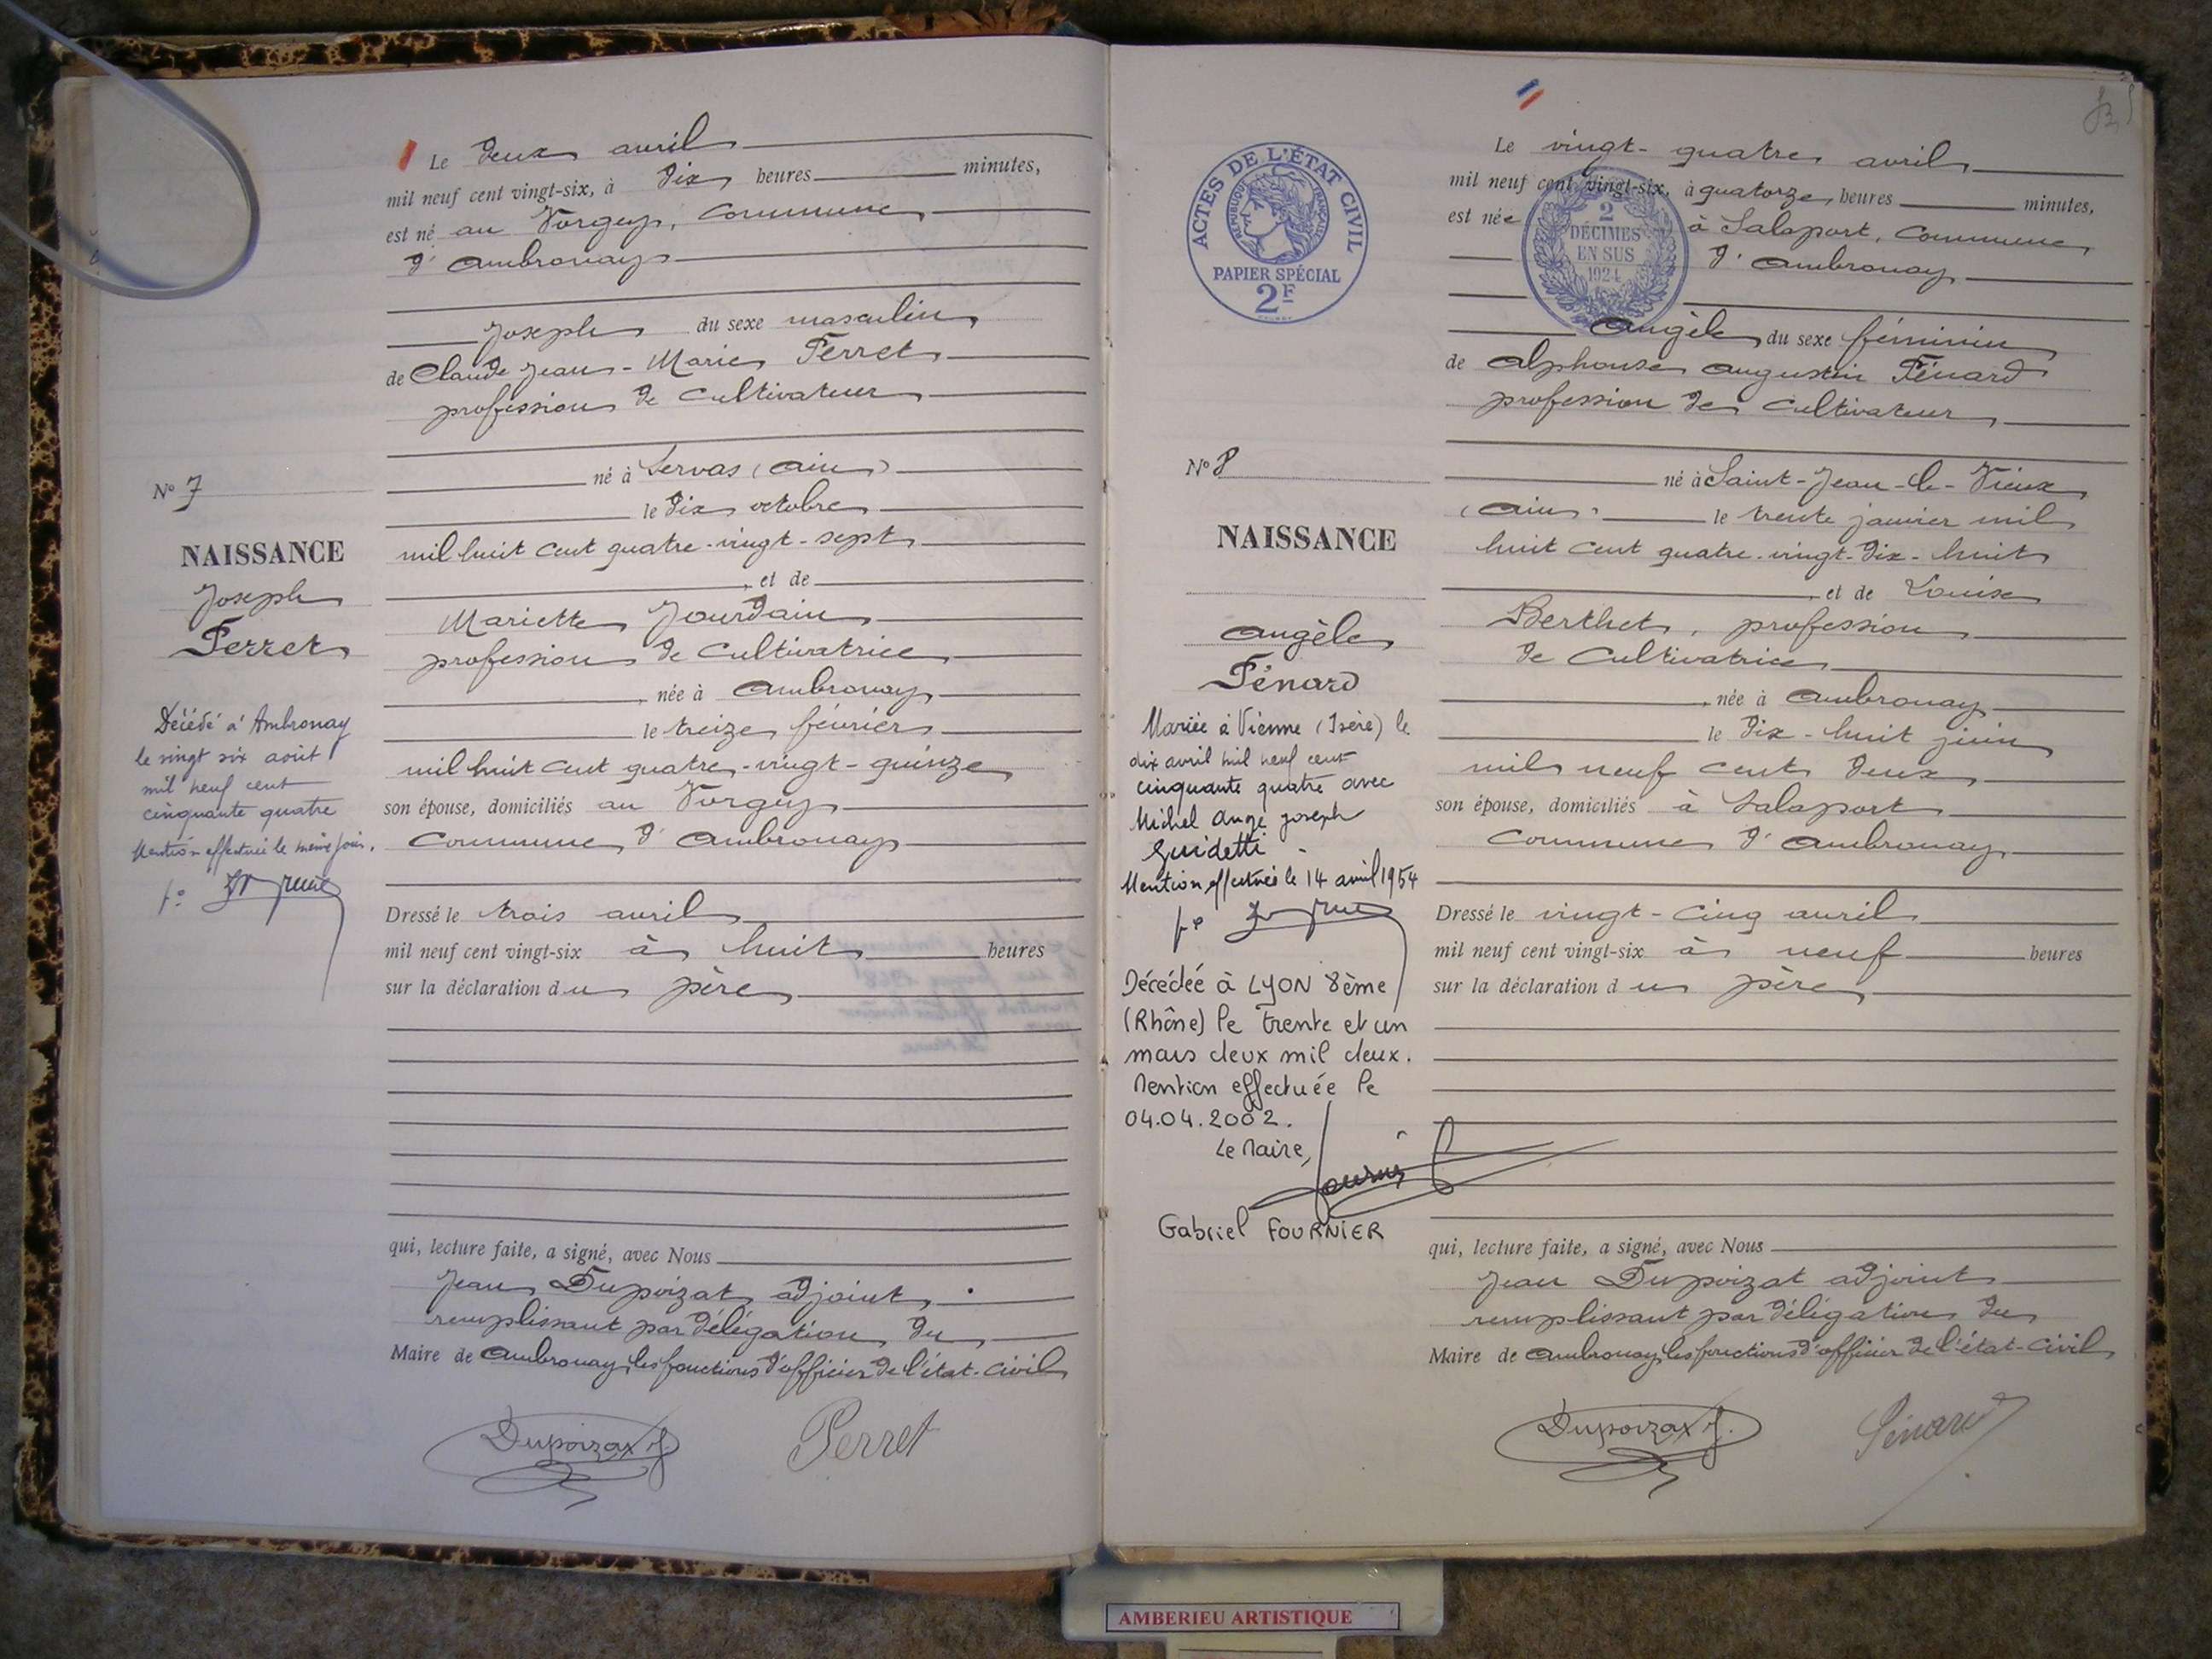 Le deux avril
mil neuf cent vingt-six, à dix heures minutes,
est né au Vorgey, commune
d'Ambronay
Joseph du sexe masculin
de Claude Jean-Marie Perret
profession de cultivateur
né à Servas (Ain)
le dix octobre
mil huit cent quatre-vingt-sept
et de
Mariette Jourdain
profession de cultivatrice
née à Ambronay
le treize février
mil huit cent quatre-vingt-quinze
son épouse, domiciliés au Vorgey
commune d'Ambronay
Dressé le trois avril
mil neuf cent vingt-six à huit heures
sur la déclaration du père
qui, lecture faite, a signé, avec Nous
Jean Dupoizat adjoint
remplissant par délégation du
Maire de Ambronay les fonctions d'officier de l'état-civil
Dupoizat J.
Perret
N° 7
NAISSANCE
Joseph
Perret
Décédé à Ambronay
le vingt six août
mil neuf cent
cinquante quatre
Mention effectuée le même jour.
ACTES DE L'ÉTAT CIVIL
RÉPUBLIQUE FRANÇAISE
PAPIER SPÉCIAL
2F
Le vingt-quatre avril
mil neuf cent vingt-six, à quatorze heures minutes,
est née à Salaport, commune
d'Ambronay
2
DÉCIMES
EN SUS
1924
Angèle du sexe féminin
de Alphonse Augustin Pénard
profession de cultivateur
né à Saint-Jean-le-Vieux
(Ain) le trente janvier mil
huit cent quatre-vingt-dix-huit
et de Louise
Berthet, profession
de cultivatrice
née à Ambronay
le dix-huit juin
mil neuf cent deux
son épouse, domiciliés à Salaport
commune d'Ambronay
Dressé le vingt-cinq avril
mil neuf cent vingt-six à neuf heures
sur la déclaration du père
qui, lecture faite, a signé, avec Nous
Jean Dupoizat adjoint
remplissant par délégation du
Maire de Ambronay les fonctions d'officier de l'état-civil
Dupoizat J.
Pénard
N° 8
NAISSANCE
Angèle
Pénard
Mariée à Vienne (Isère) le
dix avril mil neuf cent
cinquante quatre avec
Michel Ange Joseph
Guidetti
Mention effectuée le 14 avril 1954
Décédée à LYON 8ème
(Rhône) le trente et un
mars deux mil deux.
Mention effectuée le
04.04.2002.
Le Maire,
Gabriel FOURNIER
AMBERIEU ARTISTIQUE